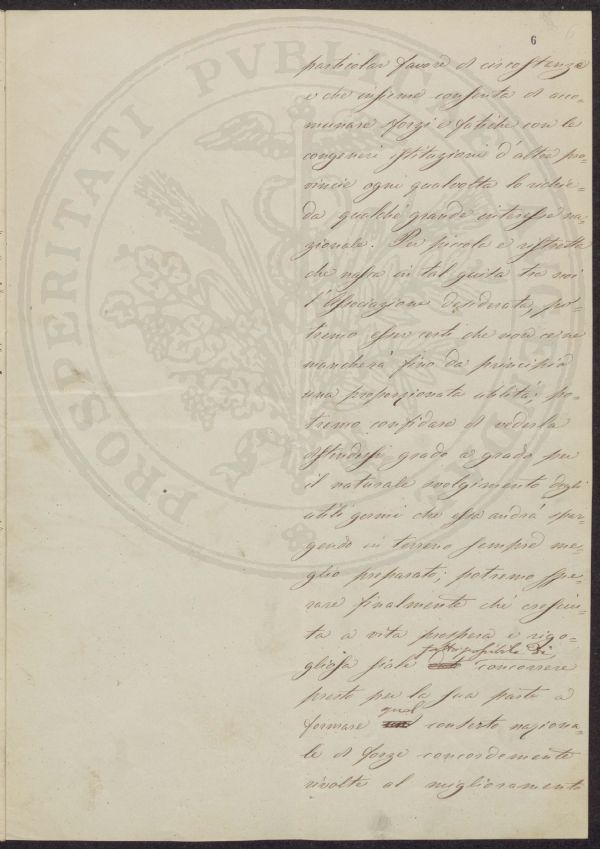 6
particolar favore di circostanze
e che insieme consenta di acco=
munare sforzi e fatiche con le
congeneri istituzioni d'altre pro=
vincie ogni qualvolta lo richie=
da qualche grande interesse na=
zionale. Per piccola e ristretta
che nasca in tal guisa tra noi
l'Associazione desiderata, po=
tremo esser certi che non ce ne
mancherà fino da principio
una proporzionata utilità; po=
tremo confidare di vederla
estendersi grado a grado per
il naturale svolgimento degli
utili germi che essa andrà spar=
gendo in terreno sempre me=
glio preparato; potremo spe=
rare finalmente che cresciu=
ta a vita prospera e rigo=
fatto possibile di
gliosa siale concorrere
presto per la sua parte a
quel
formare conserto naziona=
le di forze concordemente
rivolte al miglioramento
PROSPERITATI PVBLICAE